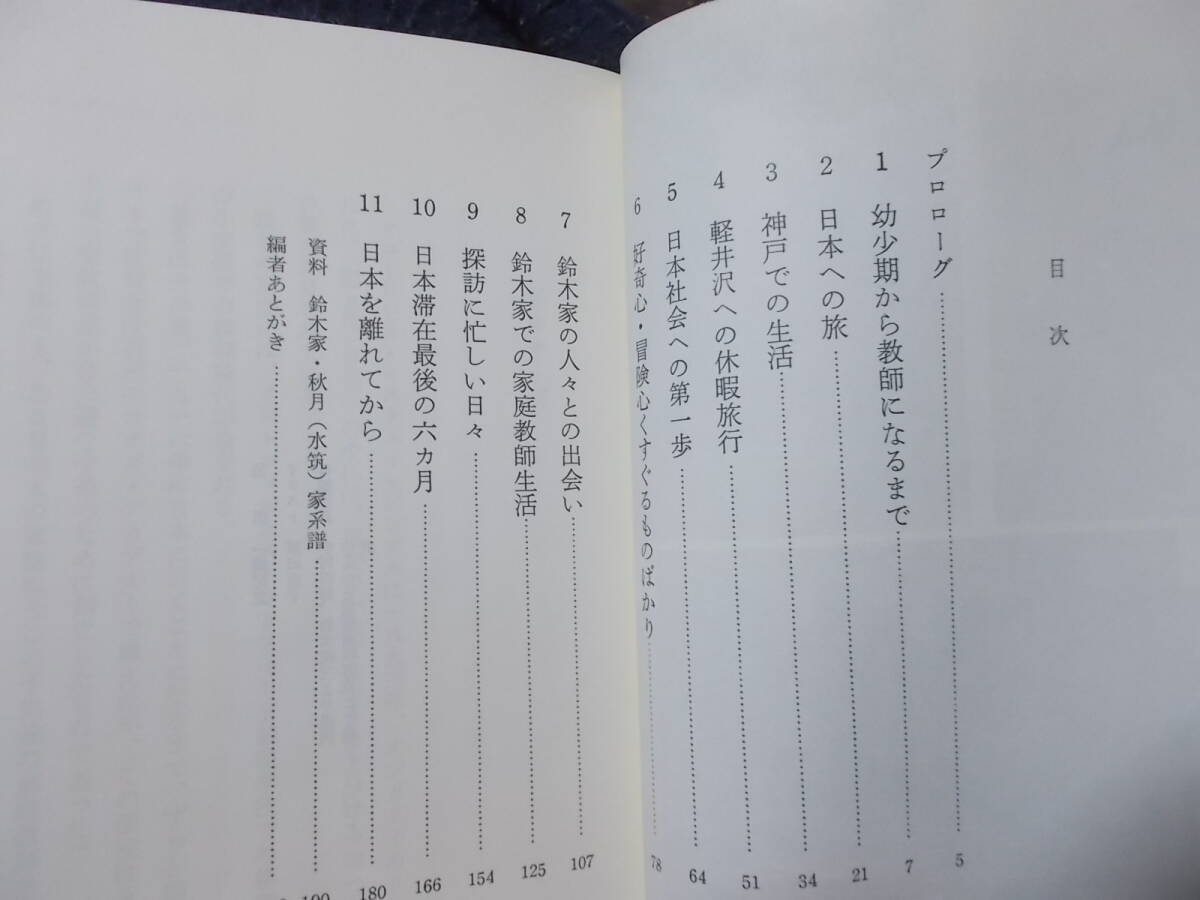 目次
プロローグ……………5
1 幼少期から教師になるまで……………7
2 日本への旅……………21
3 神戸での生活……………34
4 軽井沢への休暇旅行……………51
5 日本社会への第一歩……………64
6 好奇心・冒険心くすぐるものばかり……………78
7 鈴木家の人々との出会い……………107
8 鈴木家での家庭教師生活……………125
9 探訪に忙しい日々……………154
10 日本滞在最後の六カ月……………166
11 日本を離れてから……………180
資料 鈴木家・秋月（水筑）家系譜……………
編者あとがき……………